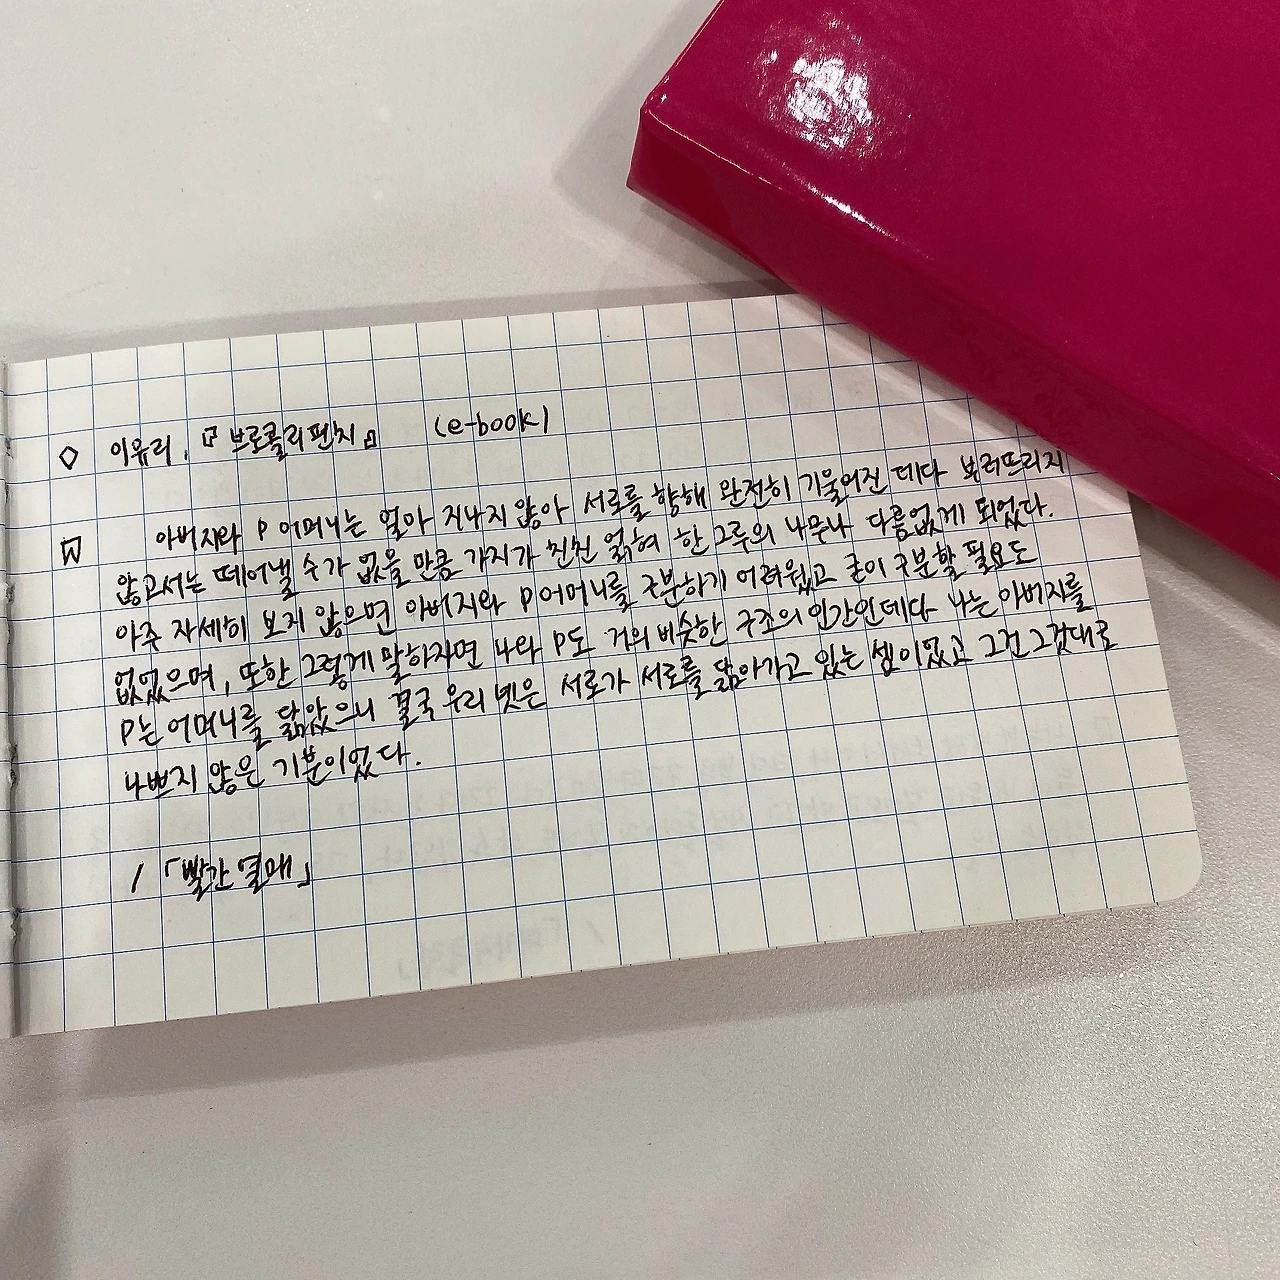 ◇ 이유리, 『브로콜리펀치』 (e-book)
아버지와 P 어머니는 얼마 지나지 않아 서로를 향해 완전히 기울어진 데다 부러뜨리지
않고서는 떼어낼 수가 없을 만큼 가지가 친친 얽혀 한 그루의 나무나 다름없게 되었다.
아주 자세히 보지 않으면 아버지와 P어머니를 구분하기 어려웠고 굳이 구분할 필요도
없었으며, 또한 그렇게 말하자면 나와 P도 거의 비슷한 구조의 인간인데다 나는 아버지를
P는 어머니를 닮았으니 결국 우리 넷은 서로가 서로를 닮아가고 있는 셈이었고 그건 그것대로
나쁘지 않은 기분이었다.
/ 「빨간 열매」